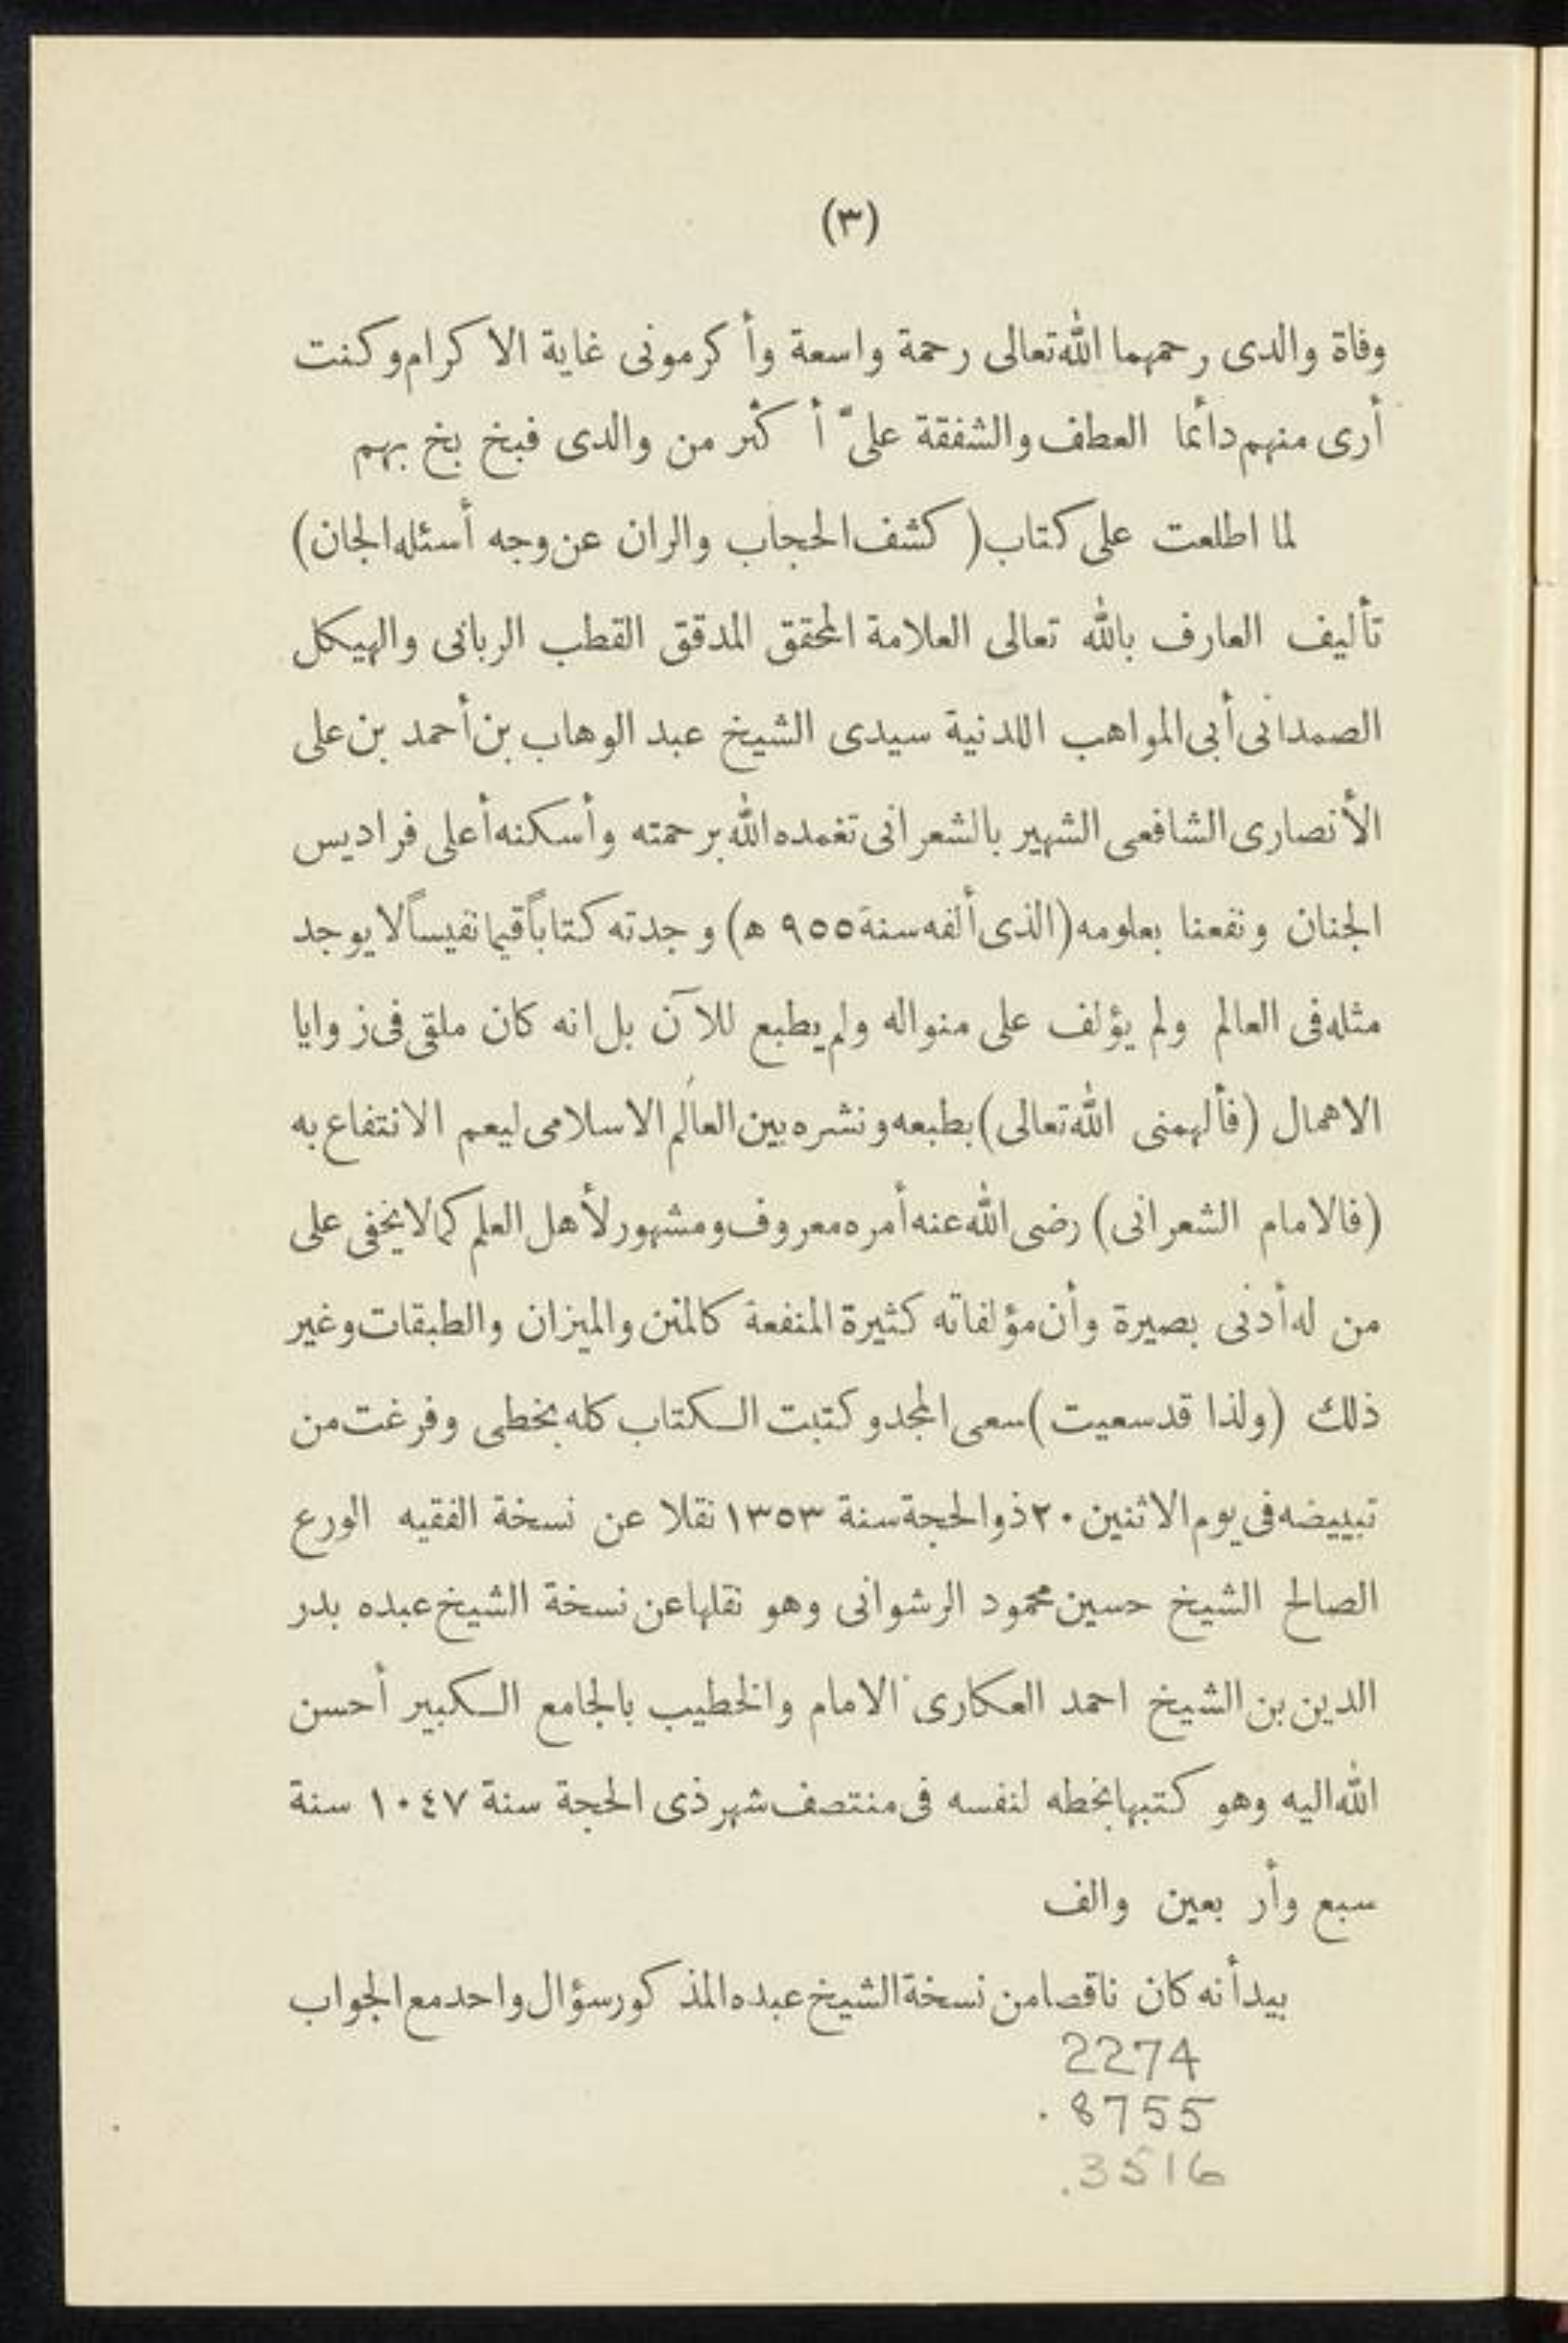 (٣)
وفاة والدى رحمهما الله تعالى رحمة واسعة وأكرمونى غاية الاكرام وكنت
أرى منهم دائما العطف والشفقة علىّ أكثر من والدى فبخ بخ بهم
لما اطلعت على كتاب (كشف الحجاب والران عن وجه أسئله الجان)
تأليف العارف بالله تعالى العلامة المحقق المدقق القطب الربانى والهيكل
الصمدانى أبى المواهب اللدنية سيدى الشيخ عبد الوهاب بن أحمد بن على
الأنصارى الشافعى الشهير بالشعرانى تغمده الله برحمته وأسكنه أعلى فراديس
الجنان ونفعنا بعلومه (الذى ألفه سنة ٩٥٥ ه) وجدته كتاباً قيما نفيساً لا يوجد
مثله فى العالم ولم يؤلف على منواله ولم يطبع للآن بل انه كان ملقى فى زوايا
الاهمال (فألهمنى الله تعالى) بطبعه ونشره بين العالَم الاسلامى ليعم الانتفاع به
(فالامام الشعرانى) رضى الله عنه أمره معروف ومشهور لأهل العلم كما لا يخفى على
من له أدنى بصيرة وأن مؤلفاته كثيرة المنفعة كالمنن والميزان والطبقات وغير
ذلك (ولذا قد سعيت) سعى المجد وكتبت الكتاب كله بخطى وفرغت من
تبييضه فى يوم الاثنين ٢٠ ذو الحجة سنة ١٣٥٣ نقلا عن نسخة الفقيه الورع
الصالح الشيخ حسين محمود الرشوانى وهو نقلها عن نسخة الشيخ عبده بدر
الدين بن الشيخ احمد العكارى الامام والخطيب بالجامع الكبير أحسن
الله اليه وهو كتبها بخطه لنفسه فى منتصف شهر ذى الحجة سنة ١٠٤٧ سنة
سبع وأربعين والف
بيد أنه كان ناقصا من نسخة الشيخ عبده المذكور سؤال واحد مع الجواب
2274
.8755
.3516